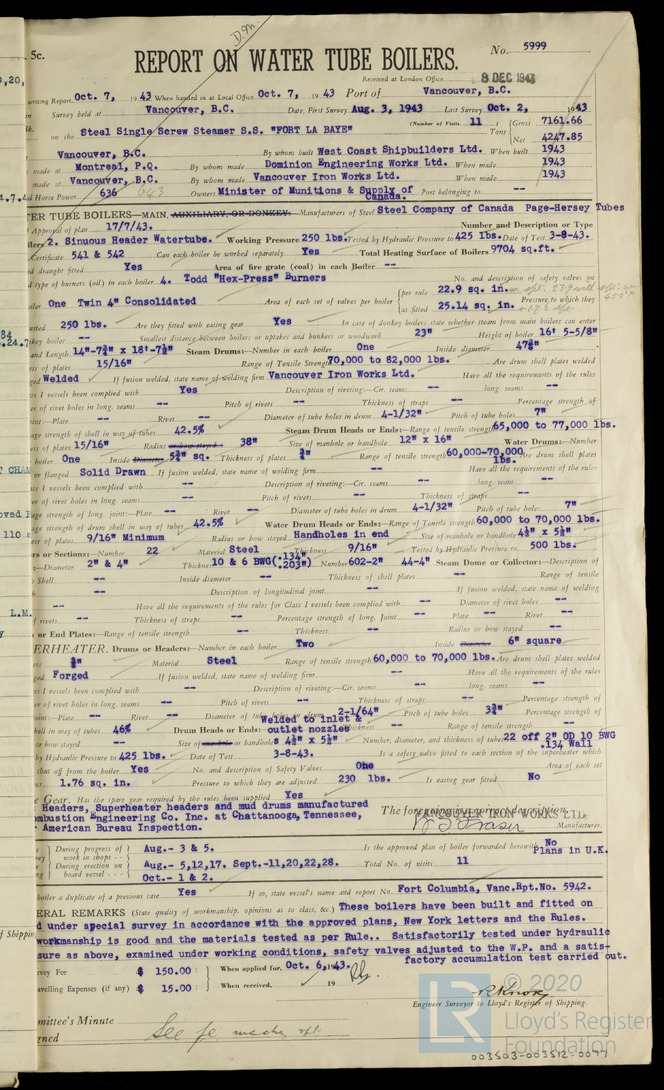 D.M.
5c.
REPORT ON WATER TUBE BOILERS.
No. 5999
Received at London Office 8 DEC 1943
Report Oct. 7, 1943 When handed in at Local Office Oct. 7, 1943 Port of Vancouver, B.C.
Survey held at Vancouver, B.C. Date, First Survey Aug. 3, 1943 Last Survey Oct. 2, 1943
on the Steel Single Screw Steamer S.S. "FORT LA BAYE" (Number of Visits 11 Tons Gross 7161.66 Net 4247.85
Vancouver, B.C. By whom built West Coast Shipbuilders Ltd. When built 1943
made at Montreal, P.Q. By whom made Dominion Engineering Works Ltd. When made 1943
made at Vancouver, B.C. By whom made Vancouver Iron Works Ltd. When made 1943
Horse Power 636 643 Owners Minister of Munitions & Supply of Canada. Port belonging to --
ER TUBE BOILERS—MAIN, AUXILIARY, OR DONKEY.—Manufacturers of Steel Steel Company of Canada Page-Hersey Tubes
Approval of plan 17/7/43. Number and Description or Type
lers 2. Sinuous Header Watertube. Working Pressure 250 lbs. Tested by Hydraulic Pressure to 425 lbs. Date of Test 3-8-43.
Certificate 541 & 542 Can each boiler be worked separately Yes Total Heating Surface of Boilers 9704 sq.ft.
draught fitted Yes Area of fire grate (coal) in each Boiler --
type of burners (oil) in each boiler 4. Todd "Hex-Press" Burners No. and description of safety valves on
iler One Twin 4" Consolidated Area of each set of valves per boiler per rule 22.9 sq. in. as fitted 25.14 sq. in. Pressure to which they
250 lbs. Are they fitted with easing gear Yes In case of donkey boilers state whether steam from main boilers can enter
key boiler -- Smallest distance between boilers or uptakes and bunkers or woodwork 23" Height of boiler 16' 5-5/8"
and Length 14"-7¾" x 18'-7½" Steam Drums:—Number in each boiler One Inside diameter 47⅝"
of plates 15/16" Range of Tensile Strength 70,000 to 82,000 lbs. Are drum shell plates welded
Welded If fusion welded, state name of welding firm Vancouver Iron Works Ltd. Have all the requirements of the rules
I vessels been complied with Yes Description of riveting:—Cir. seams -- long. seams --
er of rivet holes in long. seams -- Pitch of rivets -- Thickness of straps -- Percentage strength of
int:—Plate -- Rivet -- Diameter of tube holes in drum 4-1/32" Pitch of tube holes 7"
age strength of shell in way of tubes 42.5% Steam Drum Heads or Ends:—Range of tensile strength 65,000 to 77,000 lbs.
of plates 15/16" Radius 38" Size of manhole or handhole 12" x 16" Water Drums:—Number
boiler One Inside Diameter 5¾" sq. Thickness of plates ¾" Range of tensile strength 60,000-70,000 lbs. Are drum shell plates
or flanged Solid Drawn If fusion welded, state name of welding firm -- Have all the requirements of the rules
I vessels been complied with -- Description of riveting:—Cir. seams -- long. seams --
of rivet holes in long. seams -- Pitch of rivets -- Thickness of straps --
age strength of long. joint:—Plate -- Rivet -- Diameter of tube holes in drum 4-1/32" Pitch of tube holes 7"
ge strength of drum shell in way of tubes 42.5% Water Drum Heads or Ends:—Range of Tensile strength 60,000 to 70,000 lbs.
of plates 9/16" Minimum Radius or how stayed Handholes in end Size of manhole or handhole 4½" x 5½"
rs or Sections:—Number 22 Material Steel Thickness 9/16" Tested by Hydraulic Pressure to 500 lbs.
—Diameter 2" & 4" Thickness 10 & 6 BWG(.134" .203") Number 602-2" 44-4" Steam Dome or Collector:—Description of
Shell -- Inside diameter -- Thickness of shell plates -- Range of tensile
-- Description of longitudinal joint -- If fusion welded, state name of welding
-- Have all the requirements of the rules for Class I vessels been complied with -- Diameter of rivet holes --
rivets -- Thickness of straps -- Percentage strength of long. Joint -- Plate -- Rivet --
or End Plates:—Range of tensile strength -- Thickness -- Radius or how stayed --
ERHEATER. Drums or Headers:—Number in each boiler Two Inside Diameter 6" square
Material Steel Range of tensile strength 60,000 to 70,000 lbs. Are drum shell plates welded
Forged If fusion welded, state name of welding firm -- Have all the requirements of the rules
I vessels been complied with -- Description of riveting:—Cir. seams -- long. seams --
of rivet holes in long. seams -- Pitch of rivets -- Thickness of straps -- Percentage strength of
joint:—Plate -- Rivet -- Diameter of tube holes in drum 2-1/64" Pitch of tube holes 3¾" Percentage strength of
hell in way of tubes 46% Drum Heads or Ends: Welded to inlet & outlet nozzles Thickness -- Range of tensile strength --
or how stayed -- Size of manhole or handholes 4½" x 5½" Number, diameter, and thickness of tubes 22 off 2" OD 10 BWG .134 Wall
by Hydraulic Pressure to 425 lbs. Date of Test 3-8-43. Is a safety valve fitted to each section of the superheater which
shut off from the boiler Yes No. and description of Safety Valves One Area of each set
1.76 sq. in. Pressure to which they are adjusted 230 lbs. Is easing gear fitted No
e Gear. Has the spare gear required by the rules been supplied Yes
Headers, Superheater headers and mud drums manufactured
mbustion Engineering Co. Inc. at Chattanooga, Tennessee,
American Bureau Inspection.
The foregoing is a correct description,
VANCOUVER IRON WORKS LTD.
Manufacturer.
During progress of work in shops -- Aug.- 3 & 5. Is the approved plan of boiler forwarded herewith No Plans in U.K.
During erection on board vessel -- Aug.- 5,12,17. Sept.-11,20,22,28. Total No. of visits 11
Oct.- 1 & 2.
boiler a duplicate of a previous case Yes If so, state vessel's name and report No. Fort Columbia, Vanc.Rpt.No. 5942.
ERAL REMARKS (State quality of workmanship, opinions as to class, &c.) These boilers have been built and fitted on
d under special survey in accordance with the approved plans, New York letters and the Rules.
workmanship is good and the materials tested as per Rule.. Satisfactorily tested under hydraulic
sure as above, examined under working conditions, safety valves adjusted to the W.P. and a satis-
factory accumulation test carried out.
vey Fee $ 150.00 : When applied for, Oct. 6, 1943.
velling Expenses (if any) $ 15.00 : When received, 19
Engineer Surveyor to Lloyd's Register of Shipping.
mmittee's Minute
gned See fe machy rpt.
© 2020
LR Lloyd's Register
Foundation
003503-003512-0077